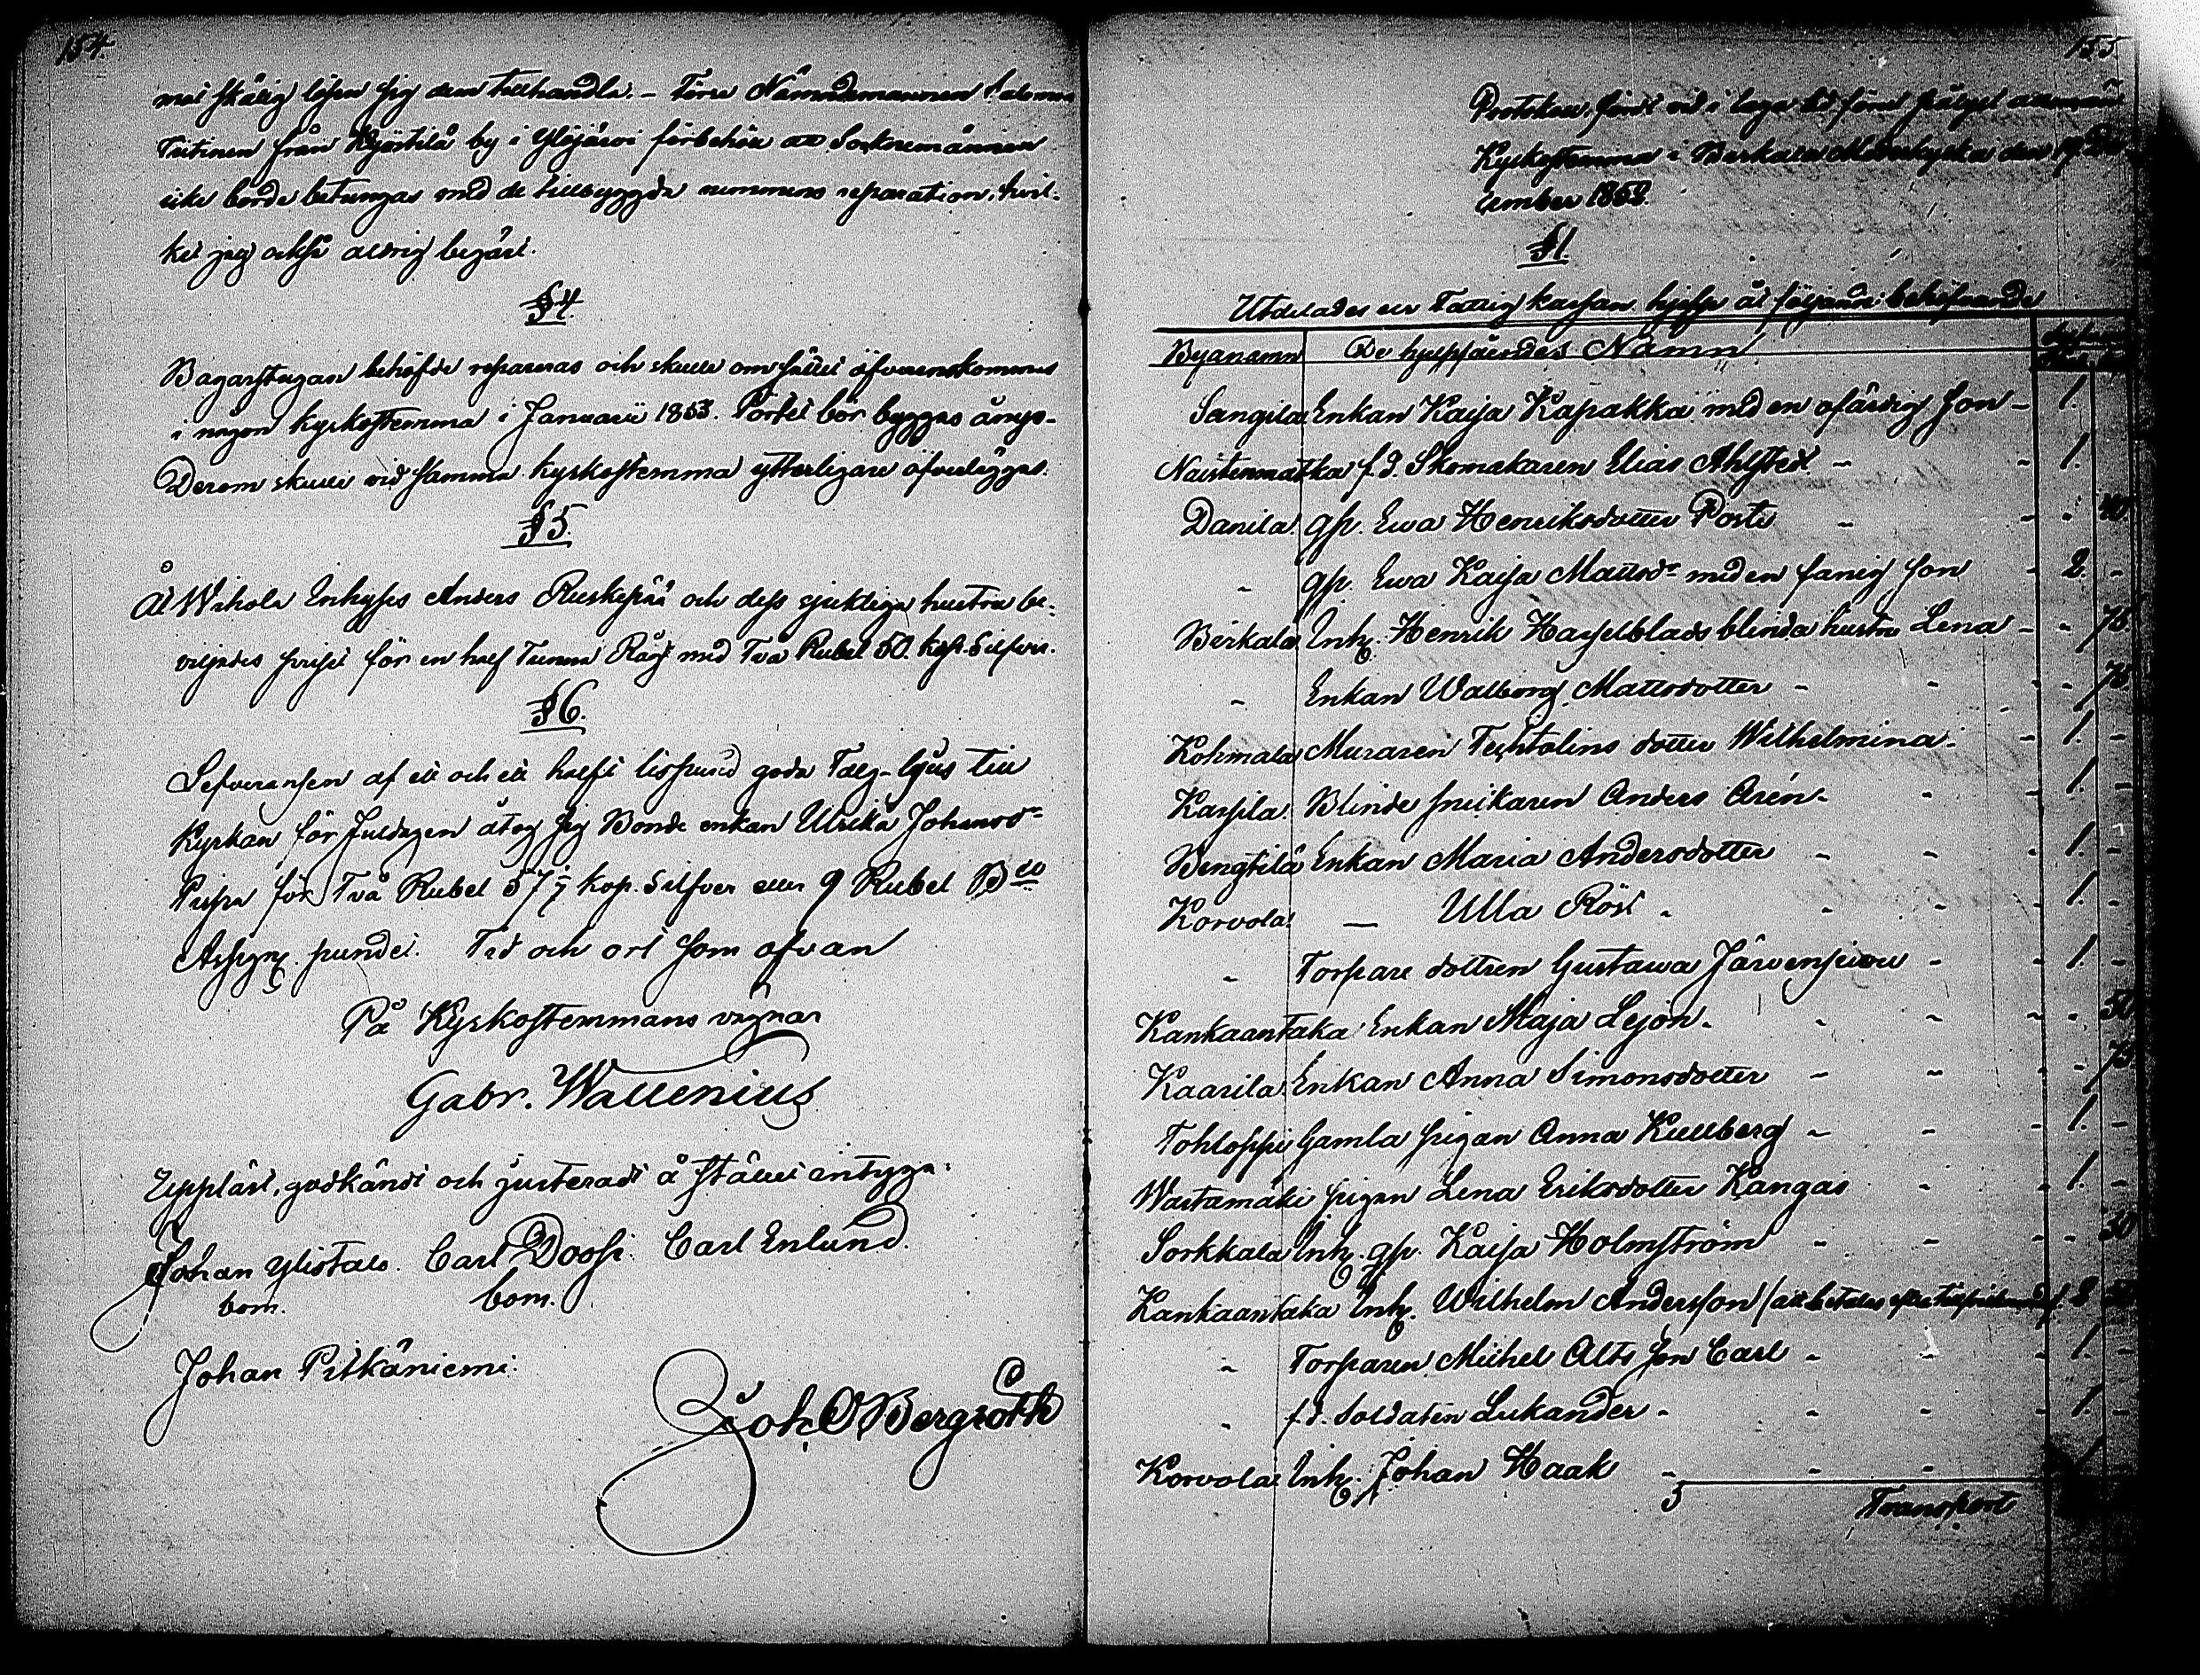 154.
mot skälig lösen sig dem tillhandla. – Förre Nämndemannen Salomon
Teitinen från Kyöstilä by i Ylöjärvi förbehöll att Socknemännen
icke borde betungas med de tillbyggda rummens reparation, hvil-
ket jag också aldrig begärt.
§ 4.
Bagarstugan behöfde repareras och skulle om sättet öfverenskommas
i någon kyrkostemma i Januarii 1853. Pörtet bör byggas ånyo.
Derom skulle vid samma kyrkostemma ytterligare öfverläggas.
§ 5.
Åt Wihola Inhyses Anders Ruskepää och dess sjukliga hustru be-
viljades priset för en half Tunna Råg med Två Rubel 50. kop. Silfver.
§ 6.
Lefveransen af ett och ett halft lispund goda Talg-ljus till
Kyrkan för Juldagen åtog sig Bonde enkan Ulrika Johansdr
Pispa för Två Rubel 57 1/7 kop. Silfver eller 9 Rubel Bco
Assign. pundet. Tid och ort som ofvan
På Kyrkostemmans vägnar
Gabr. Wallenius
Uppläst, godkändt och justeradt å stället intyga:
Johan Ylistalo. Carl Doofi. Carl Enlund.
bom. bom.
Johan Pitkäniemi.
Joh. O Bergroth
155
Protokoll, fördt vid i laga tid förut pålyst allmän
Kyrkostemma i Birkala Moderkyrka den 19 De-
cember 1852.
§ 1.
Utdelades ur Fattig kassan hjelp åt följande behöfvande
Byanamn De hjelpsökandes Namn
Sangila Enkan Kaisa Kapakka med en ofärdig son – 1.
Naistenmatka f.d. Skomakaren Elias Ahlsted – – 1.
Danila gp. Ewa Henriksdotter Posti – – – 40
– gp. Ewa Kaisa Mattsdr med en fånig son – 2. –
Birkala Inh. Henrik Hasselblads blinda hustru Lena – – 75
– Enkan Walborg Mattsdotter – – – – 75
Kohmala Muraren Techtolins dotter Wilhelmina. – 1. –
Kassila. Blinde snickaren Anders Arén. – – 1. –
Bengtilä Enkan Maria Andersdotter – – – 1. –
Korvola. — Ulla Röst – – – – 1. –
– Torpare dottren Gustawa Järvensivu – – 1. –
Kankaantaka Enkan Maja Lejon. – – – – 50
Kaarila. Enkan Anna Simonsdotter – – – 75
Tohloppi Gamla pigan Anna Kullberg – – – 1. –
Wastamäki pigan Lena Eriksdotter Kangas – – 1. –
Sorkkala Inh. gp. Kaisa Holmström – – – – 50
Kankaantaka Inh. Wilhelm Andersson /att betalas efter 2
– Torparen Michel Alts son Carl – – – 1. –
– f.d. Soldaten Lukander – – – – 1. –
Korvola Inh. Johan Haak – – – 1
Transport